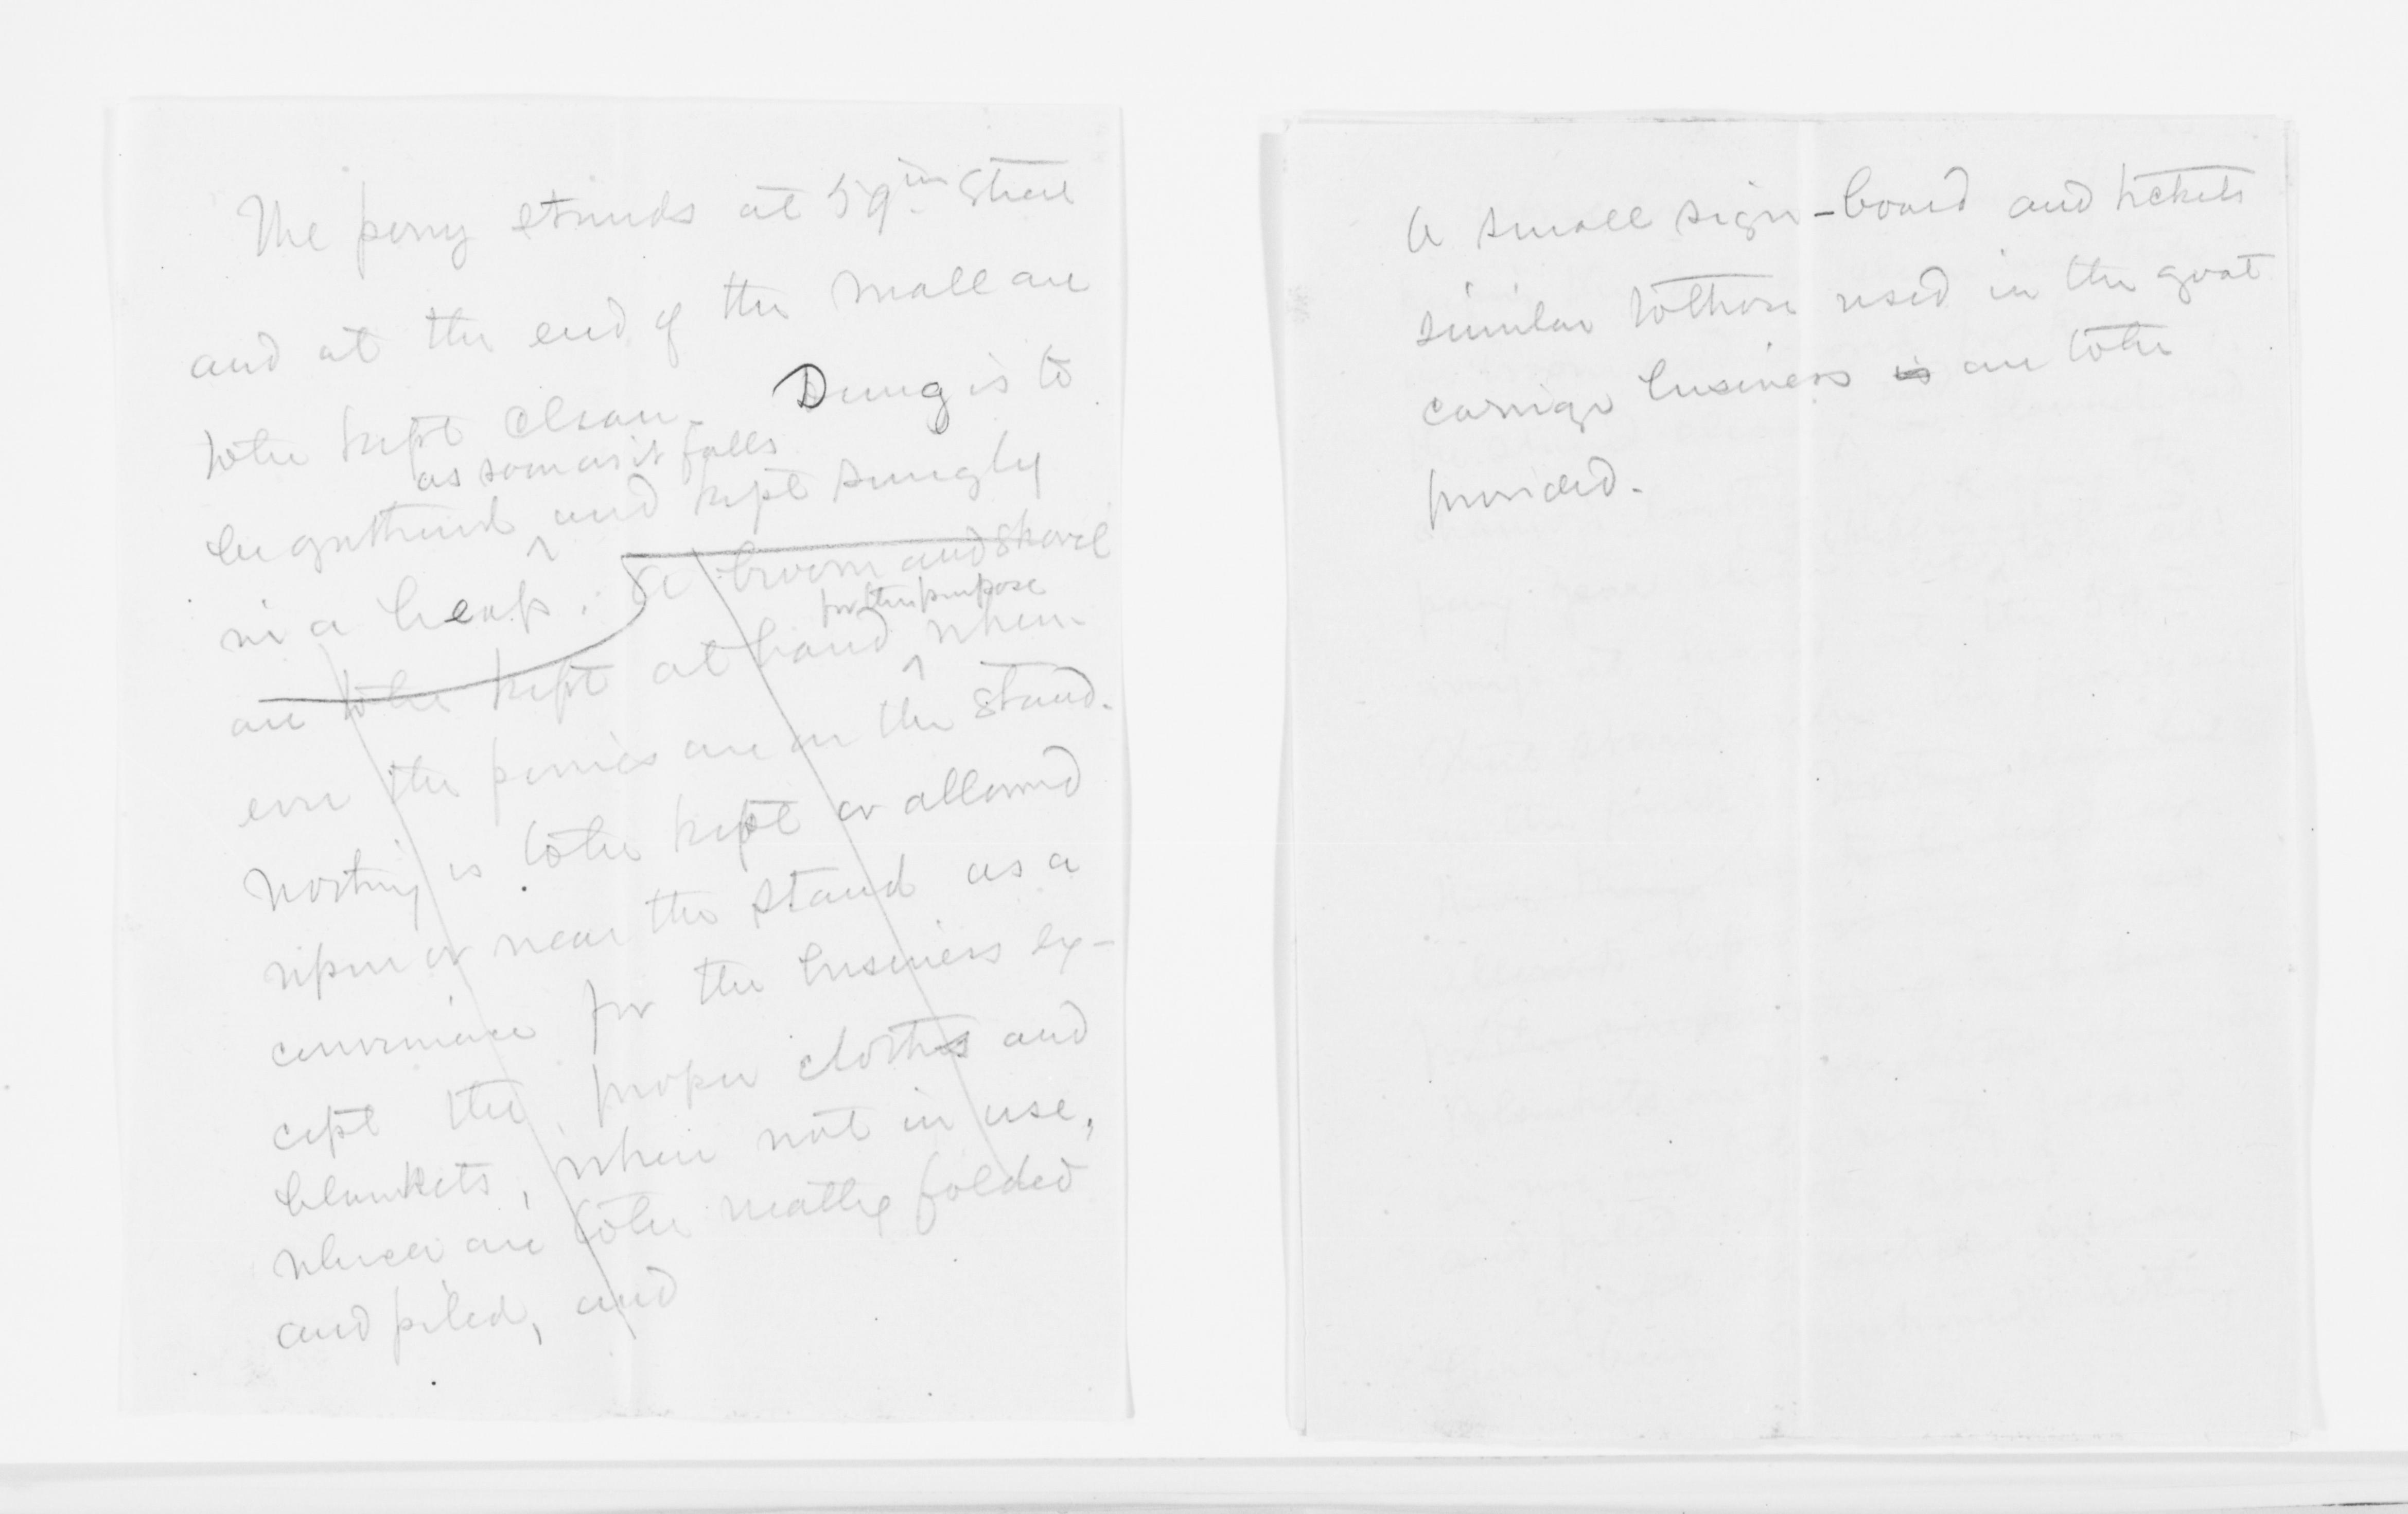 The pony stands at 59th Street
and at the end of the Mall are
to be kept clean. Dung is to
as soon as it falls
be gathered and kept snugly
in a heap. A broom and shovel
for the purpose
are to be kept at hand when-
ever the ponies are on the stand.
Nothing is to be kept or allowed
upon or near the stand as a
convenience for the business ex-
cept the proper cloths and
blankets, when not in use,
which are to be neatly folded
and piled, and
A small sign-board and tickets
similar to those used in the goat
carriage business is are to be
provided.